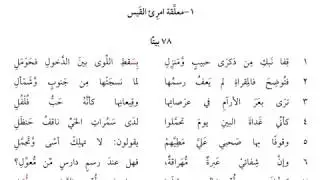 ١-معلّقة امرئ القَيس
٧٨ بيتًا
١ قِفا نَبكِ مِن ذِكرَى حبيبٍ ومَنزِلِ بِسَقطِ اللّوَى بينَ الدَّخولِ فحَوْمَلِ
٢ فتُوضِحَ فالمِقراةِ لم يَعفُ رسمُها لما نسجَتْها مِن جنوبٍ وشَمْألِ
٣ ترى بعَرَ الأرآمِ في عرَصاتِها وقِيعانِها كأنّهُ حَبُّ فُلْفُلِ
٤ كأنّي غَداةَ البينِ يومَ تحمّلوا لدَى سَمُراتِ الحَيِّ ناقفُ حَنظَلِ
٥ وقوفًا بها صَحبي عليَّ مَطيَّهم يقولونَ: لا تهلِكْ أسًى وتَجمَّلِ
٦ وإنّ شِفائي عَبرةٌ مُهَراقةٌ، فهل عندَ رسمٍ دارسٍ مِن مُعوَّلِ؟